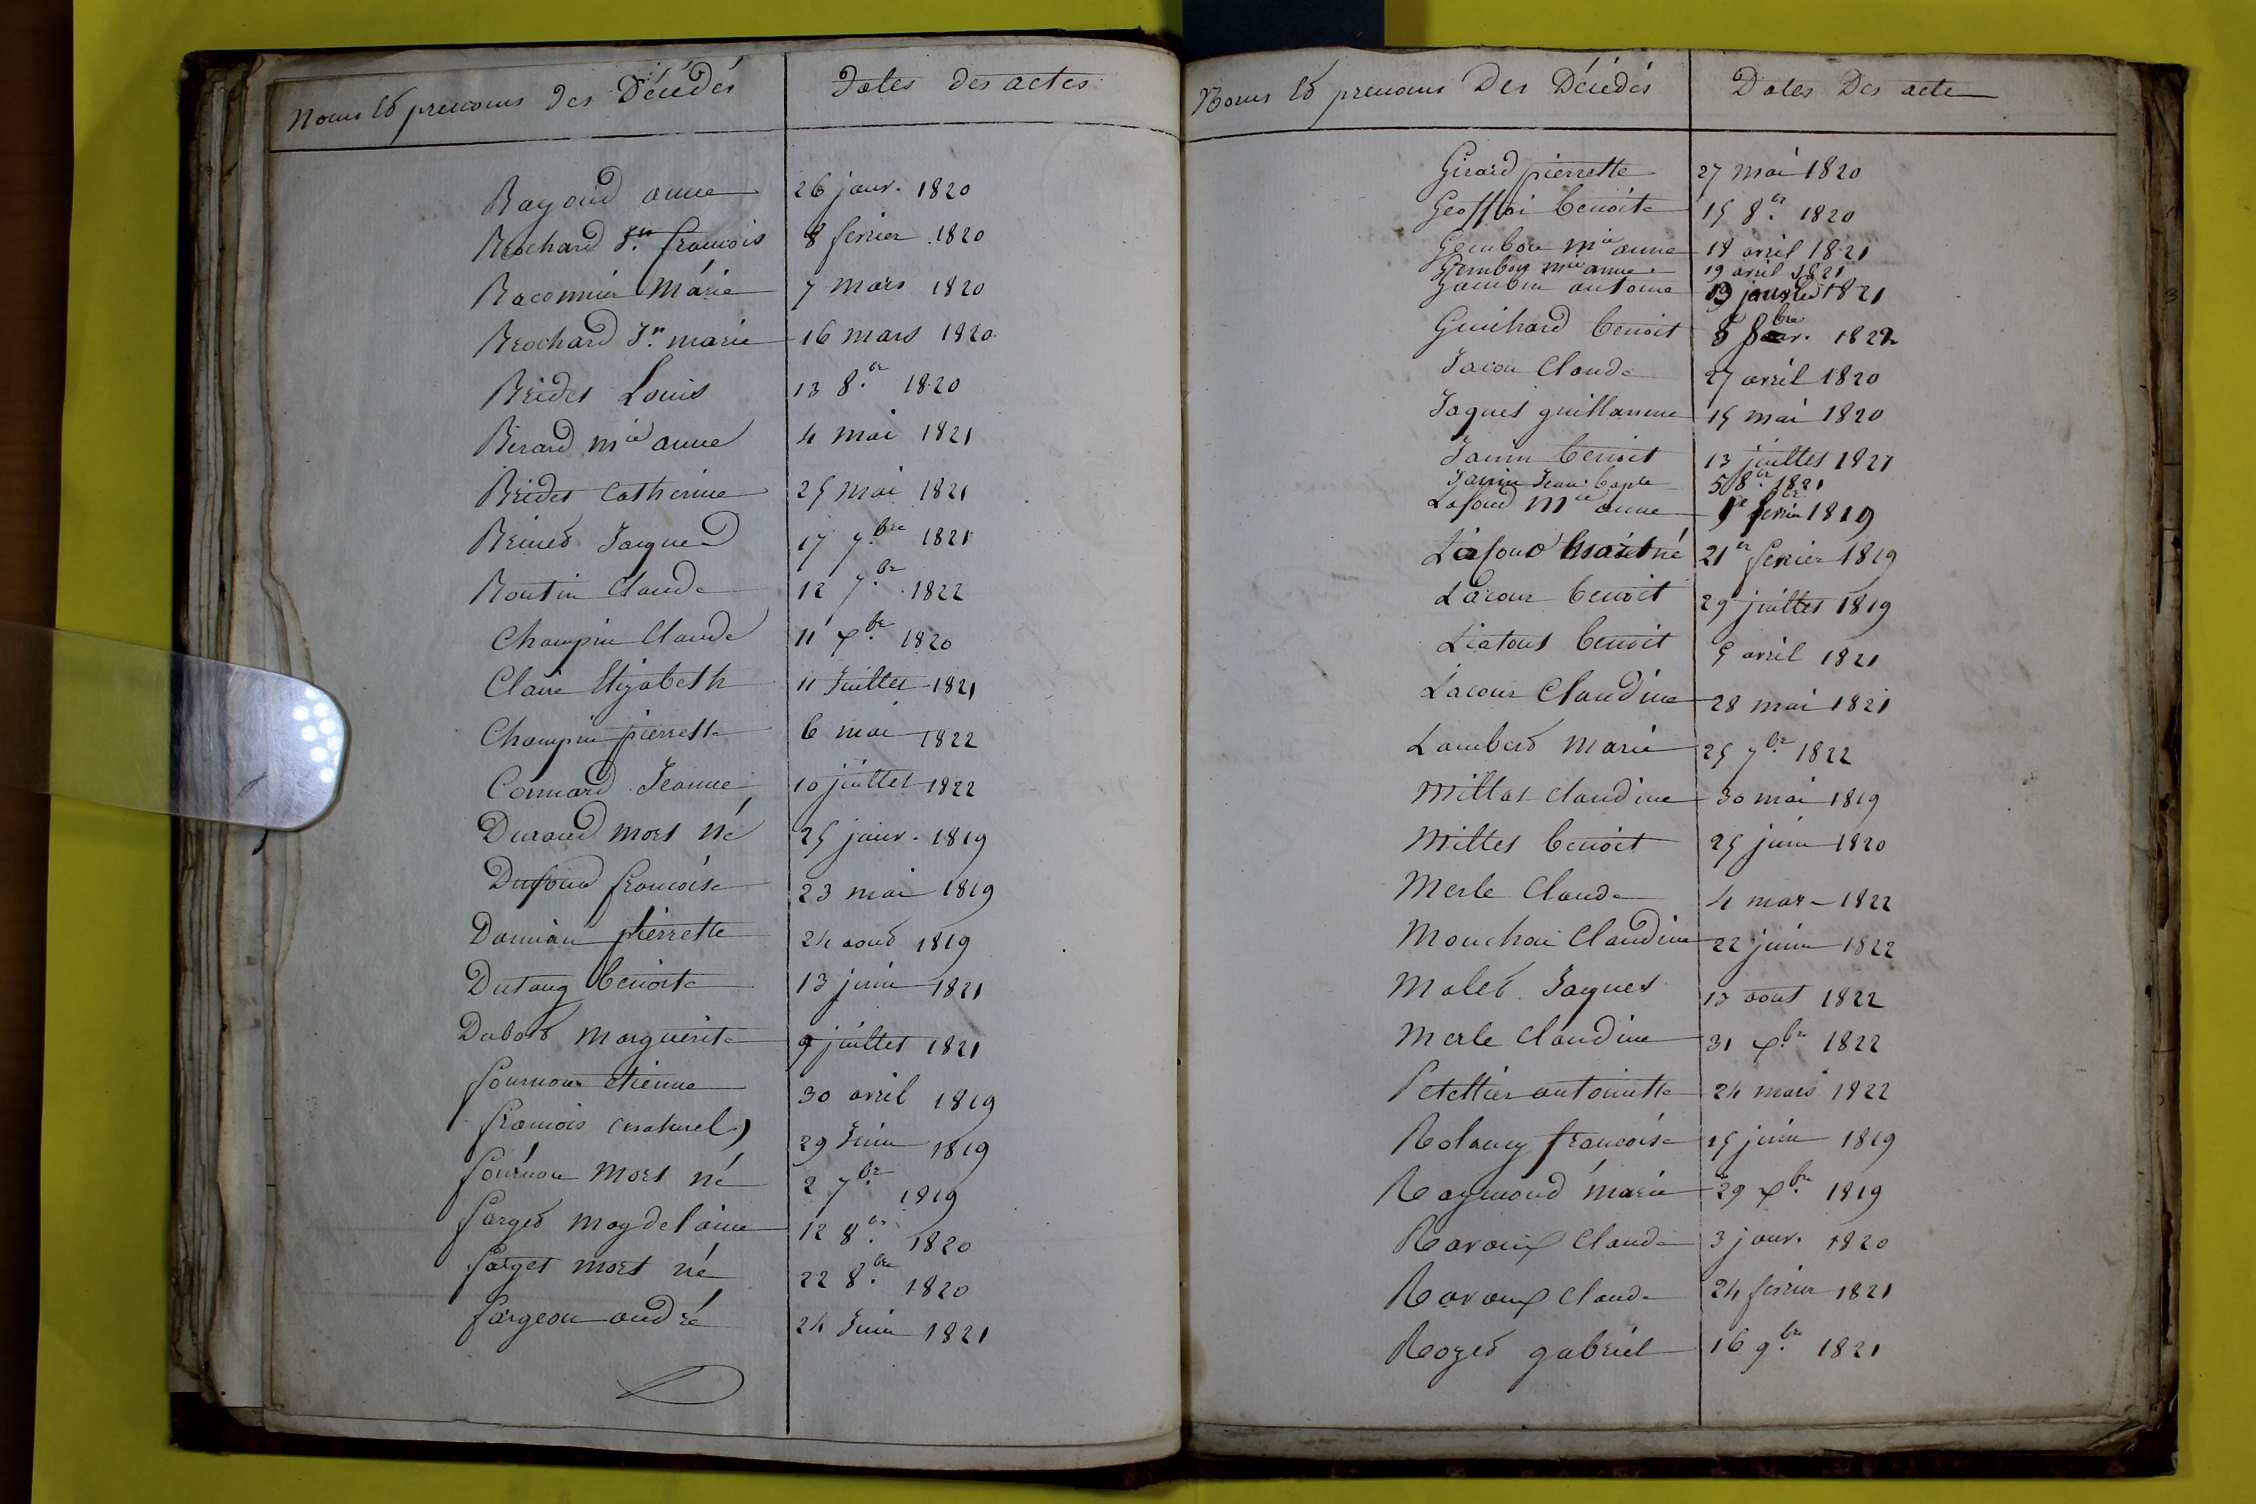 Noms et prenoms des Décédés Dates des actes
Bayoud anne 26 janv. 1820
Brochard Jn francois 8 fevrier 1820
Raconnier Márie 7 mars 1820
Brochard Jn marie 16 mars 1820
Brides Louis 13 8.re 1820
Berard mie anne 4 mai 1821
Brides Catherine 25 mai 1821
Jaques 17 7.bre 1821
Boutin Claude 12 7.bre 1822
Champin Claude 11 xbre 1820
Claire Elizabeth 11 Juillet 1821
Champin pierrette 6 mai 1822
Connard Jeanne 10 juillet 1822
Durand mort né 25 janv. 1819
Dufour francoise 23 mai 1819
Damian pierrette 24 aout 1819
Dutang benoite 13 juin 1821
Dubost Marguerite 9 juillet 1821
fournon etienne 30 avril 1819
francois (naturel) 29 Juin 1819
fournon mort né 2 7bre 1819
farget magdelaine 12 8.re 1820
farget mort né 22 8.bre 1820
fargeon andré 24 Juin 1821
Noms et prenoms Des Décédés Dates Des acte
Girard pierrette 27 mai 1820
Geoffrai benoite 15 8.re 1820
Gembon mie anne 18 avril 1821
Gembon mie anne 19 avril 1821
antoine 1821
Guichard benoit 1822
Jacon Claude 27 avril 1820
Jaques guillaume 15 mai 1820
Janin benoit 13 juillet 1821
Janin Jean bapte 5 8.re 1821
Lafond Mie anne 1819
Lafond mort né 21 fevrier 1819
Lacour benoit 29 juillet 1819
Liatous benoit 5 avril 1821
Lacour Claudine 28 mai 1821
Lambert Marie 25 7bre 1822
Millet claudine 30 mai 1819
Millet benoit 25 juin 1820
Merle Claude 4 mars 1822
Mouchon Claudine 22 juin 1822
Malet Jaques 13 aout 1822
Merle Claudine 31 xbre 1822
Peteltier antoinette 24 mars 1822
Rolancy francoise 15 juin 1819
Raymond márie 29 xbre 1819
Ravoux Claude 3 janv. 1820
Ravoux Claude 24 fevrier 1821
Rozet gabriel 16 9.bre 1821